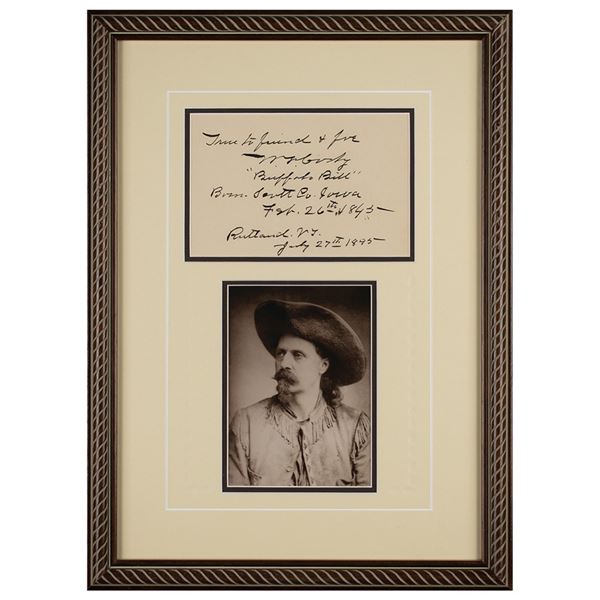 True to friend & foe
W. F. Cody
"Buffalo Bill"
Born. Scott Co. Iowa
Feb. 26th 1845
Rutland. VT.
July 27th 1895